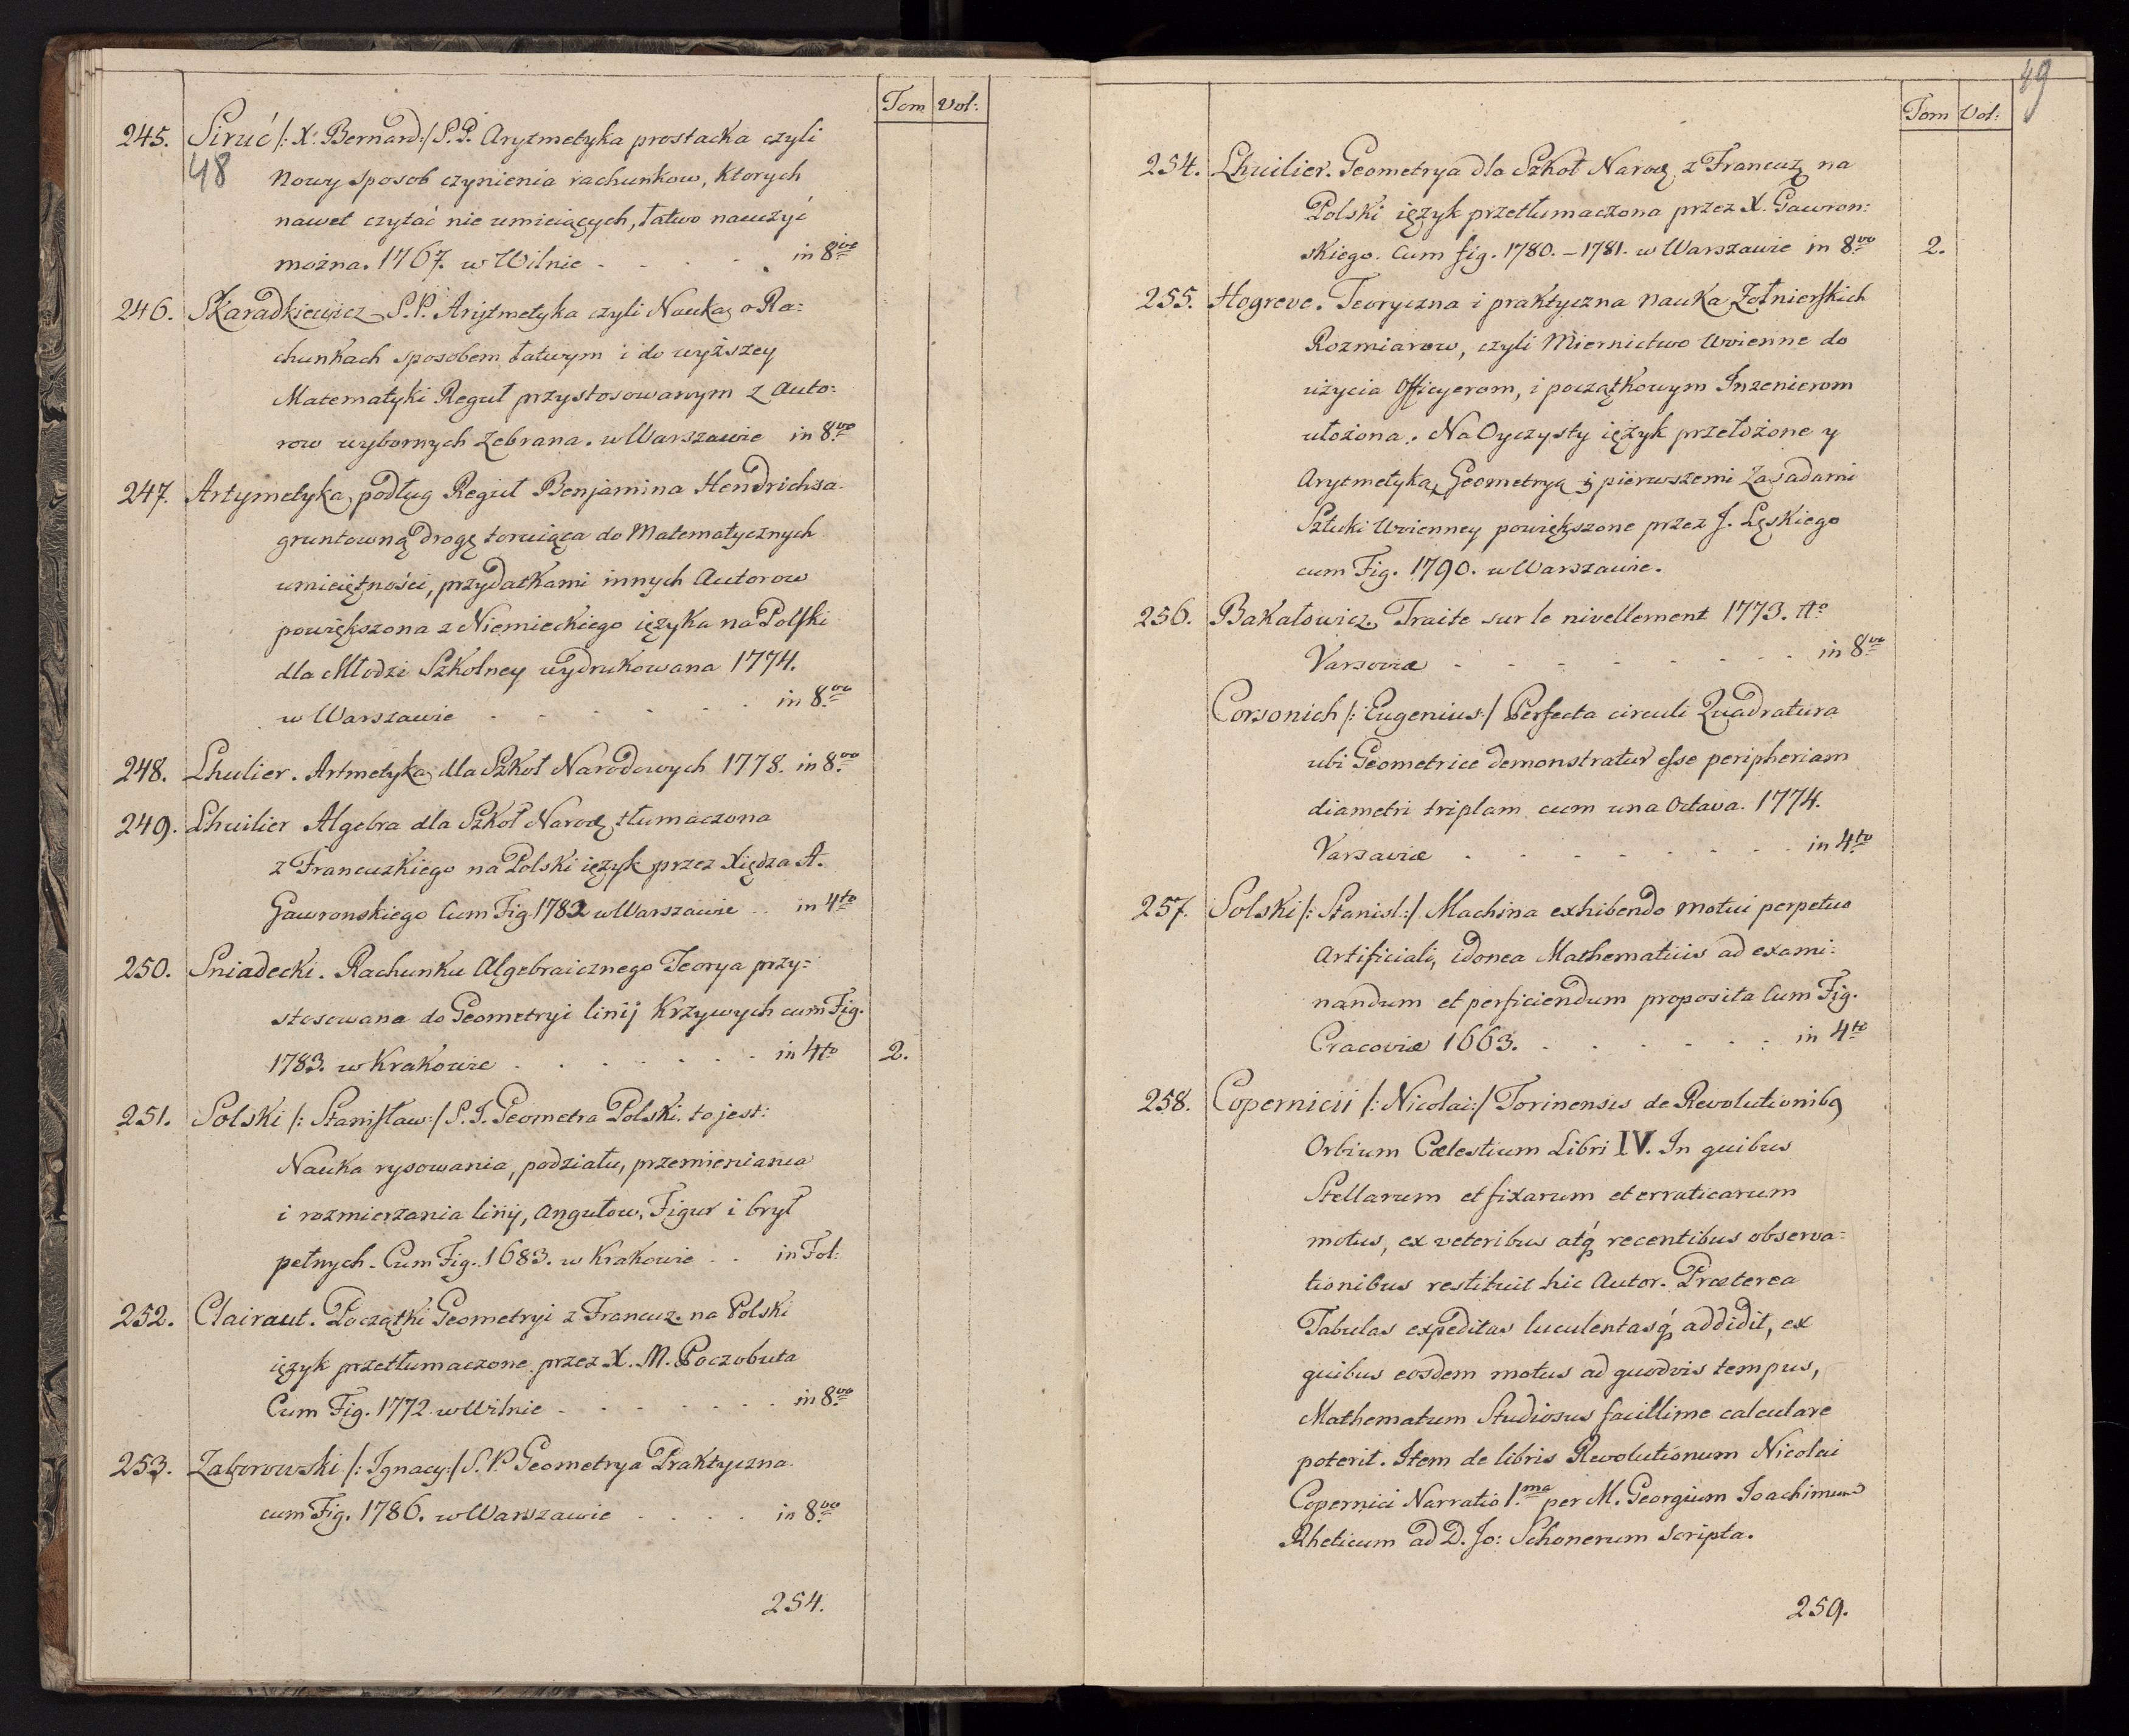 Tom Vol:
245. Siruć /: X. Bernard :/ S.P. Arytmetyka prostacka czyli
48
nowy sposob czynienia rachunkow, ktorych
nawet czytać nie umieiących, łatwo nauczyć
można. 1767. w Wilnie - - - - . in 8vo
246. Skaradkiewicz S.P. Arytmetyka czyli Nauka o Ra:
chunkach sposobem łatwym i do wyższey
Matematyki Reguł przystosowanym z Auto:
row wybornych zebrana. w Warszawie in 8vo
247. Artymetyka, podług Reguł Benjamina Hendrichsa.
gruntowną drogę toruiąca do Matematycznych
umieiętności, przydatkami innych Autorow
powiększona z Niemieckiego ięzyka na Polski
dla Młodzi Szkolney wydrukowana 1774.
w Warszawie - - - - - - in 8vo
248. Lhulier. Artmetyka dla Szkoł Narodowych 1778. in 8vo
249. Lhuilier Algebra dla Szkoł Narod. tłumaczona
z Francuzkiego na Polski ięzyk przez Xiędza A.
Gawronskiego Cum Fig. 1782 w Warszawie .. in 4to
250. Sniadecki. Rachunku Algebraicznego Teorya przy:
stosowana do Geometryi linij krzywych cum Fig.
1783. w Krakowie . . . . . . in 4to 2.
251. Solski /: Stanisław :/ S.J. Geometra Polski. to jest:
Nauka rysowania, podziału, przemieniania
i rozmierzania linij, angułow, Figur i brył
pełnych. Cum Fig. 1683. w Krakowie . . in Fol:
252. Clairaut. Początki Geometryi z Francuz. na Polski
ięzyk przetłumaczone przez X. M. Poczobuta
Cum Fig. 1772 w Wilnie - - - - - - in 8vo
253. Zaborowski /: Ignacy :/ S.P. Geometrya Praktyczna.
cum Fig. 1786. w Warszawie . . . . in 8vo
254.
49
Tom Vol:
254. Lhuilier. Geometrya dla Szkoł Narod. z Francuz. na
Polski ięzyk przetłumaczona przez X. Gawron:
skiego. Cum fig. 1780. - 1781. w Warszawie in 8vo 2.
255. Hogreve. Teoryczna i praktyczna nauka Żołnierskich
Rozmiarow, czyli Miernictwo Woienne do
użycia Officyerom, i początkowym Inzenierom
ułożona. Na Oyczysty ięzyk przełożone y
Arytmetyką, Geometryą i pierwszemi Zasadami
Sztuki Woienney powiększone przez J. Łęskiego
cum Fig. 1790. w Warszawie.
256. Bakałowicz, Traite sur le nivellement 1773. Ao
Varsoviæ - - - - - - - in 8vo
Corsonich /: Eugenius :/ Perfecta circuli Quadratura
ubi Geometrice demonstratur esse peripheriam
diametri triplam cum una Octava. 1774.
Varsaviæ . - - - - - - in 4to
257. Solski /: Stanisl: :/ Machina exhibendo motui perpetuo
Artificiali, idonea Mathematicis ad exami:
nandum et perficiendum proposita Cum Fig.
Cracoviæ 1663. . . . . . . in 4to
258. Copernicii /: Nicolai :/ Torinensis de Revolutionibq
Orbium Cælestium Libri IV. In quibus
Stellarum et fixarum et erraticarum
motus, ex veteribus atq́ recentibus observa:
tionibus restituit hic Autor. Præterea
Tabulas expeditas luculentasq́ addidit, ex
quibus eosdem motus ad quodvis tempus,
Mathematum Studiosus facillime calculare
poterit. Item de libris Revolutionum Nicolai
Copernici Narratio 1.ma per M. Georgium Joachimum
Rheticum ad D. Jo: Schonerum scripta.
259.